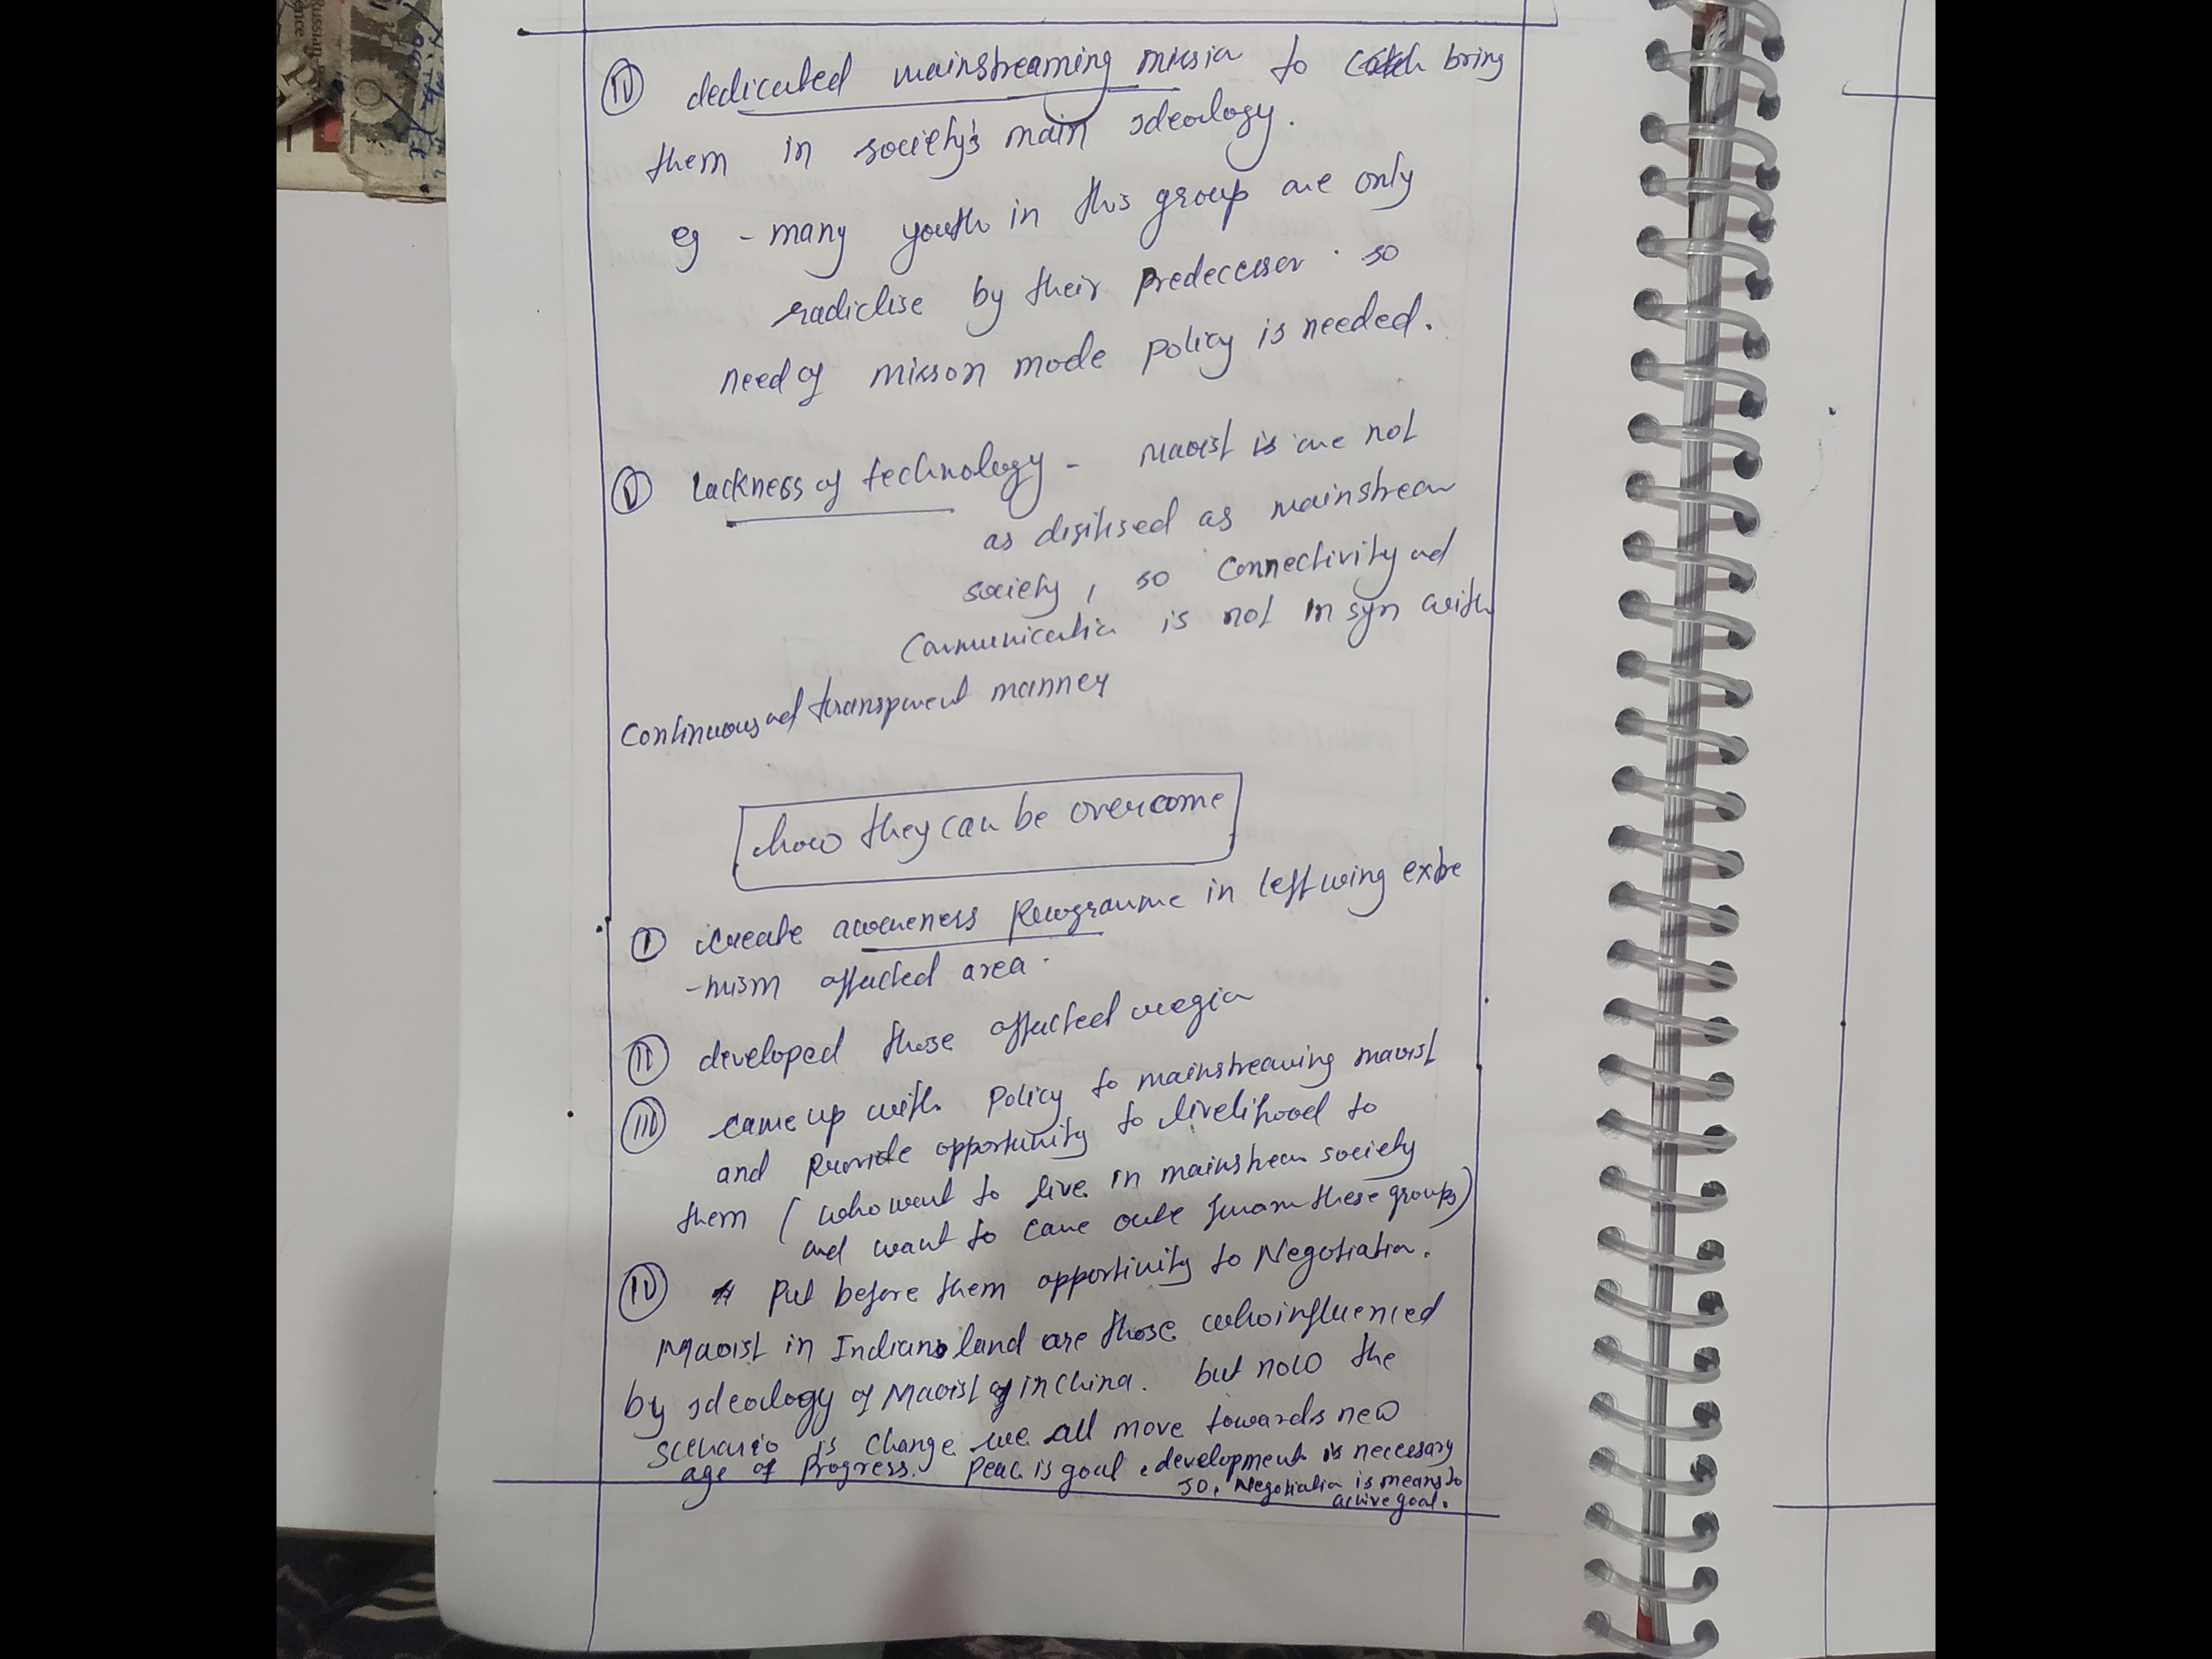 Russian
ence
(IV) dedicated mainstreaming missin to bring
them in society's main ideology.
eg - many youth in this group are only
radiclise by their predeccesor. so
need of misson mode policy is needed.
(V) Lackness of technology - Maoist is are not
as digitised as mainstream
society, so connectivity ad
communication is not in syn with
continuous ad transparent manner
how they can be overcome
(I) create awareness programme in left wing extre
-mism affected area.
(II) developed those affected region
(III) came up with policy to mainstreaming maoist
and provide opportunity to livelihood to
them (who want to live in mainstream society
and want to came oute from these groups)
(IV) Put before them opportinity to Negotiation.
Maoist in Indian land are those who influenced
by ideology of Maoist in China. but now the
scenario is change we all move towards new
age of progress. peac is goal development is neccesary
so, Negotiation is means to
achive goal.